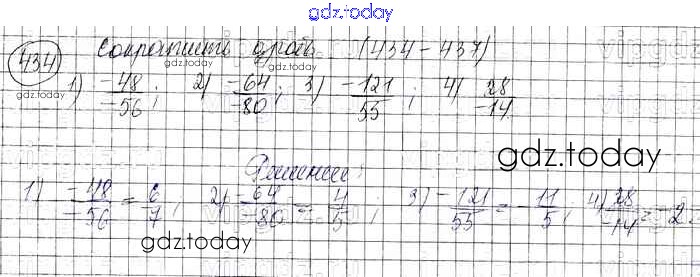 gdz.today
434 Сократить дробь (434-437)
1) -48/-56; 2) -64/-80; 3) -121/55; 4) 28/-14
gdz.today
gdz.today
gdz.today
Решение:
1) -48/-56 = 6/7; 2) -64/-80 = 4/5; 3) -121/55 = -11/5; 4) 28/-14 = -2.
gdz.today
gdz.today